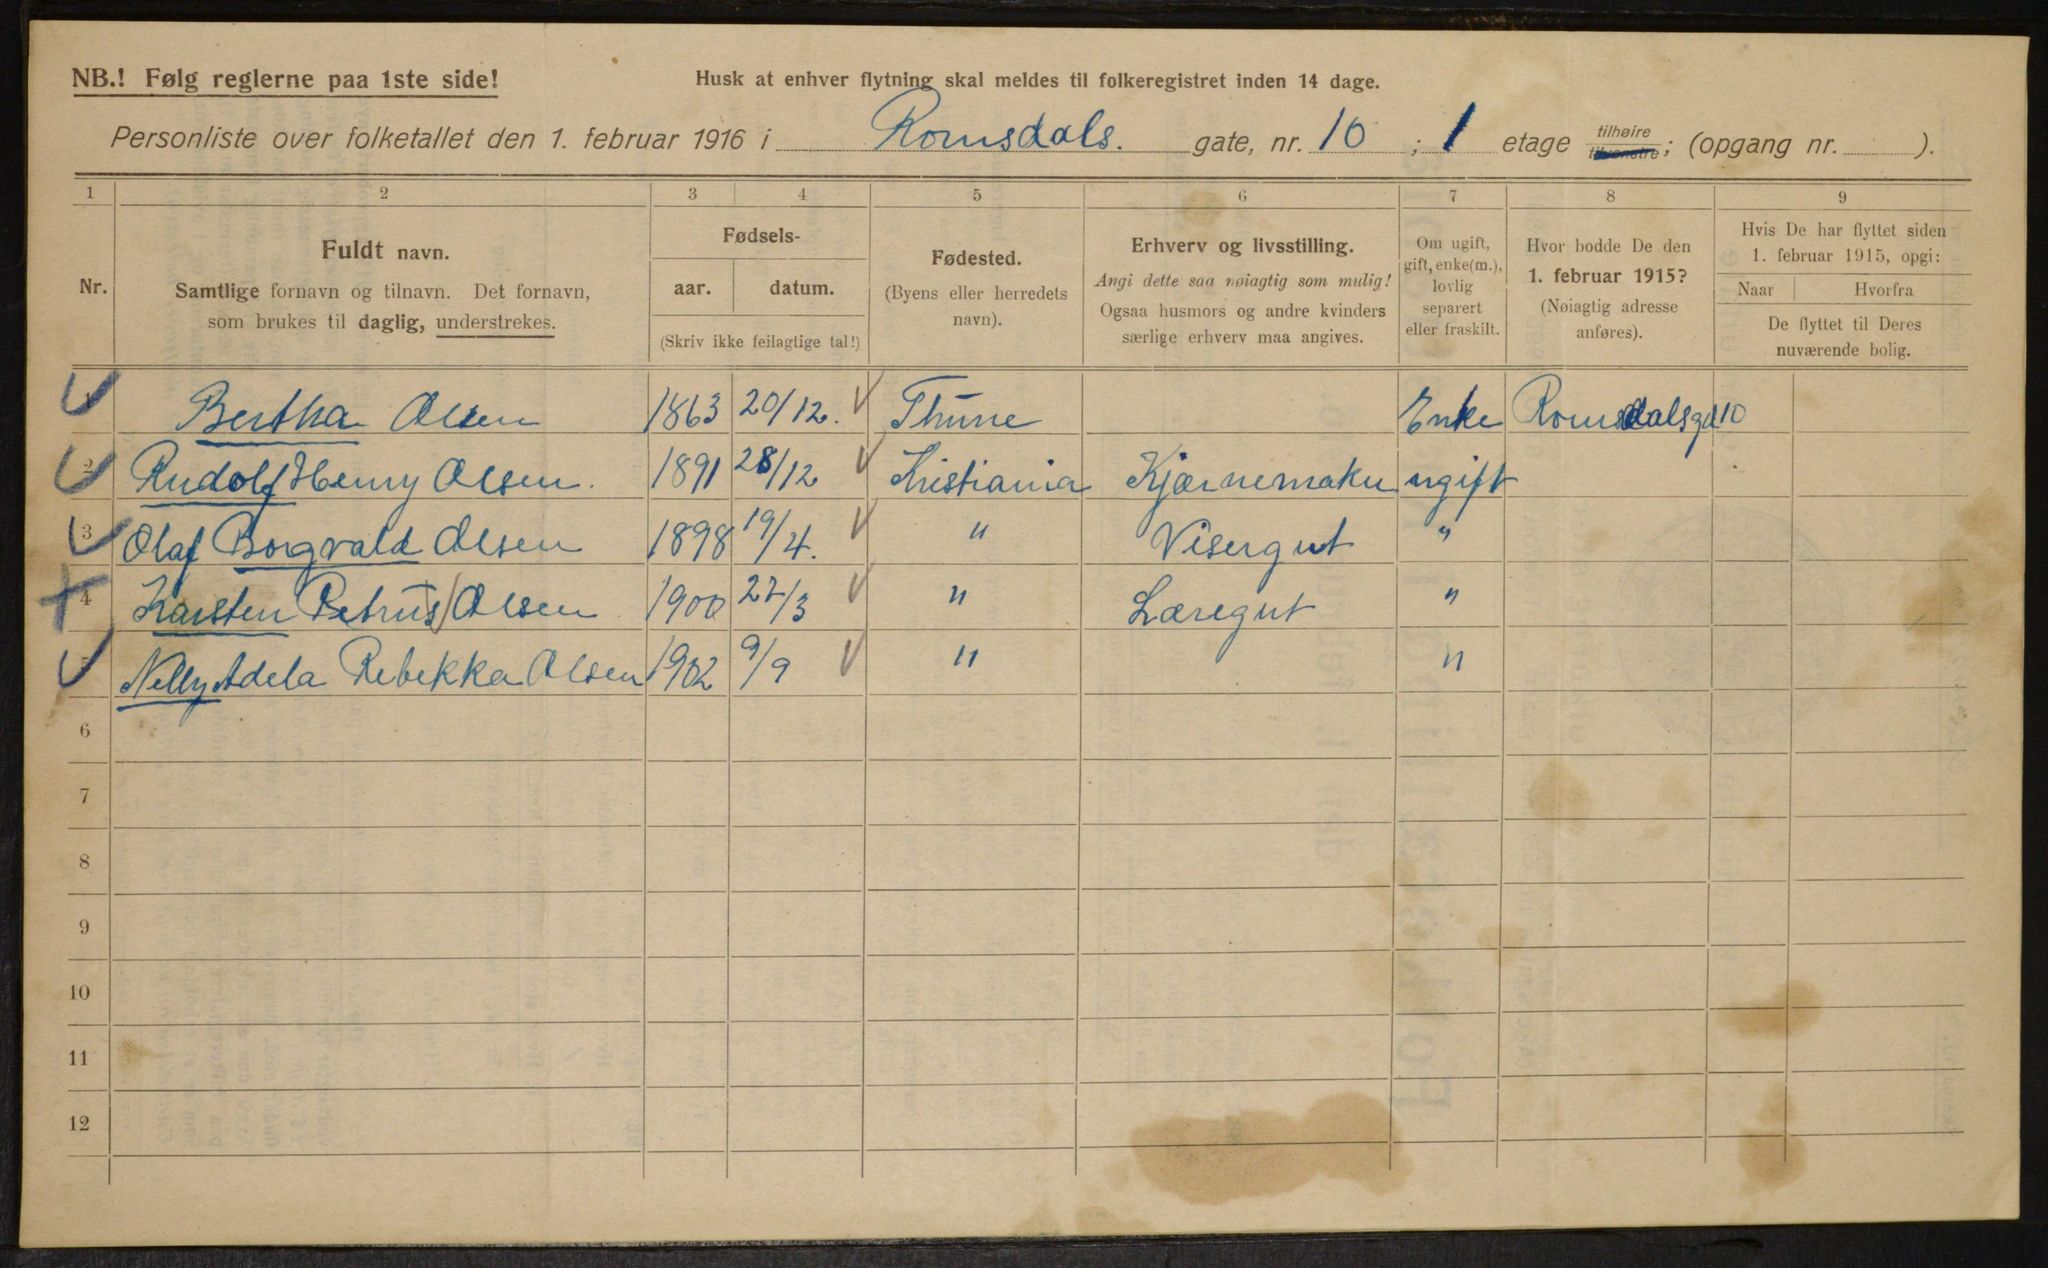 NB.! Følg reglerne paa 1ste side!
Husk at enhver flytning skal meldes til folkeregistret inden 14 dage.
Personliste over folketallet den 1. februar 1916 i Romsdals. gate, nr. 10 ; 1 etage tilhøire tilvenstre; (opgang nr. ).
1 2 3 4 5 6 7 8 9
Nr.
Fuldt navn.
Samtlige fornavn og tilnavn. Det fornavn,
som brukes til daglig, understrekes.
Fødsels-
aar. datum.
(Skriv ikke feilagtige tal!)
Fødested.
(Byens eller herredets
navn).
Erhverv og livsstilling.
Angi dette saa nøiagtig som mulig!
Ogsaa husmors og andre kvinders
særlige erhverv maa angives.
Om ugift,
gift, enke(m.),
lovlig
separert
eller fraskilt.
Hvor bodde De den
1. februar 1915?
(Nøiagtig adresse
anføres).
Hvis De har flyttet siden
1. februar 1915, opgi:
Naar Hvorfra
De flyttet til Deres
nuværende bolig.
1 Bertha Olsen 1863 20/12. Thune Enke Romsdalsgd 10
2 Rudolf Henry Olsen. 1891 28/12 Kristiania Kjærnemaker ugift
3 Olaf Borgvald Olsen 1898 19/4. " Visergut "
4 Karsten Petrus/Olsen 1900 22/3 " Læregut "
5 Nelly Adela Rebekka Olsen 1902 9/9 " "
6
7
8
9
10
11
12